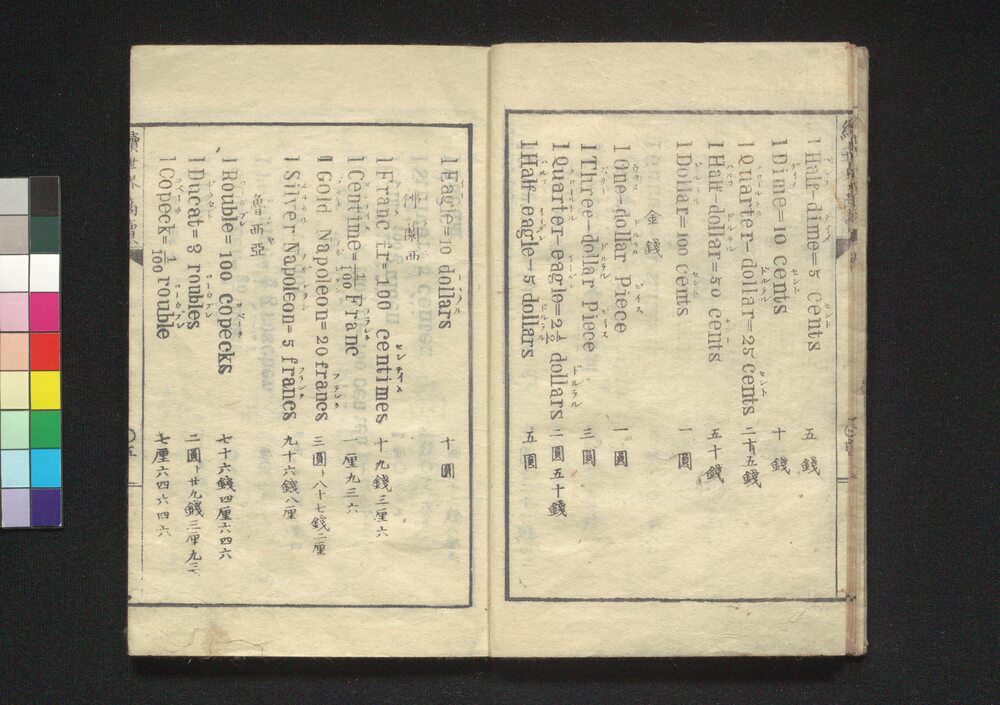 1 Half-dime=5 cents 五錢
1 Dime=10 cents 十錢
1 Quarter-dollar=25 cents 二十五錢
1 Half-dollar=50 cents 五十錢
1 Dollar=100 cents 一圓
金錢
1 One-dollar Piece 一圓
1 Three-dollar Piece 三圓
1 Quarter-eagle=2½ dollars 二圓五十錢
1 Half-eagle=5 dollars 五圓
1 Eagle=10 dollars 十圓
佛蘭西
1 Franc fr=100 centimes 十九錢三厘六
1 Centime=1/100 Franc 一厘九三六
1 Gold Napoleon=20 francs 三圓ト八十七錢二厘
1 Silver Napoleon=5 francs 九十六錢八厘
魯西亞
1 Rouble=100 copecks 七十六錢四厘六四六
1 Ducat=3 roubles 二圓ト廿九錢三厘九三
1 Copeck=1/100 rouble 七厘六四六四六